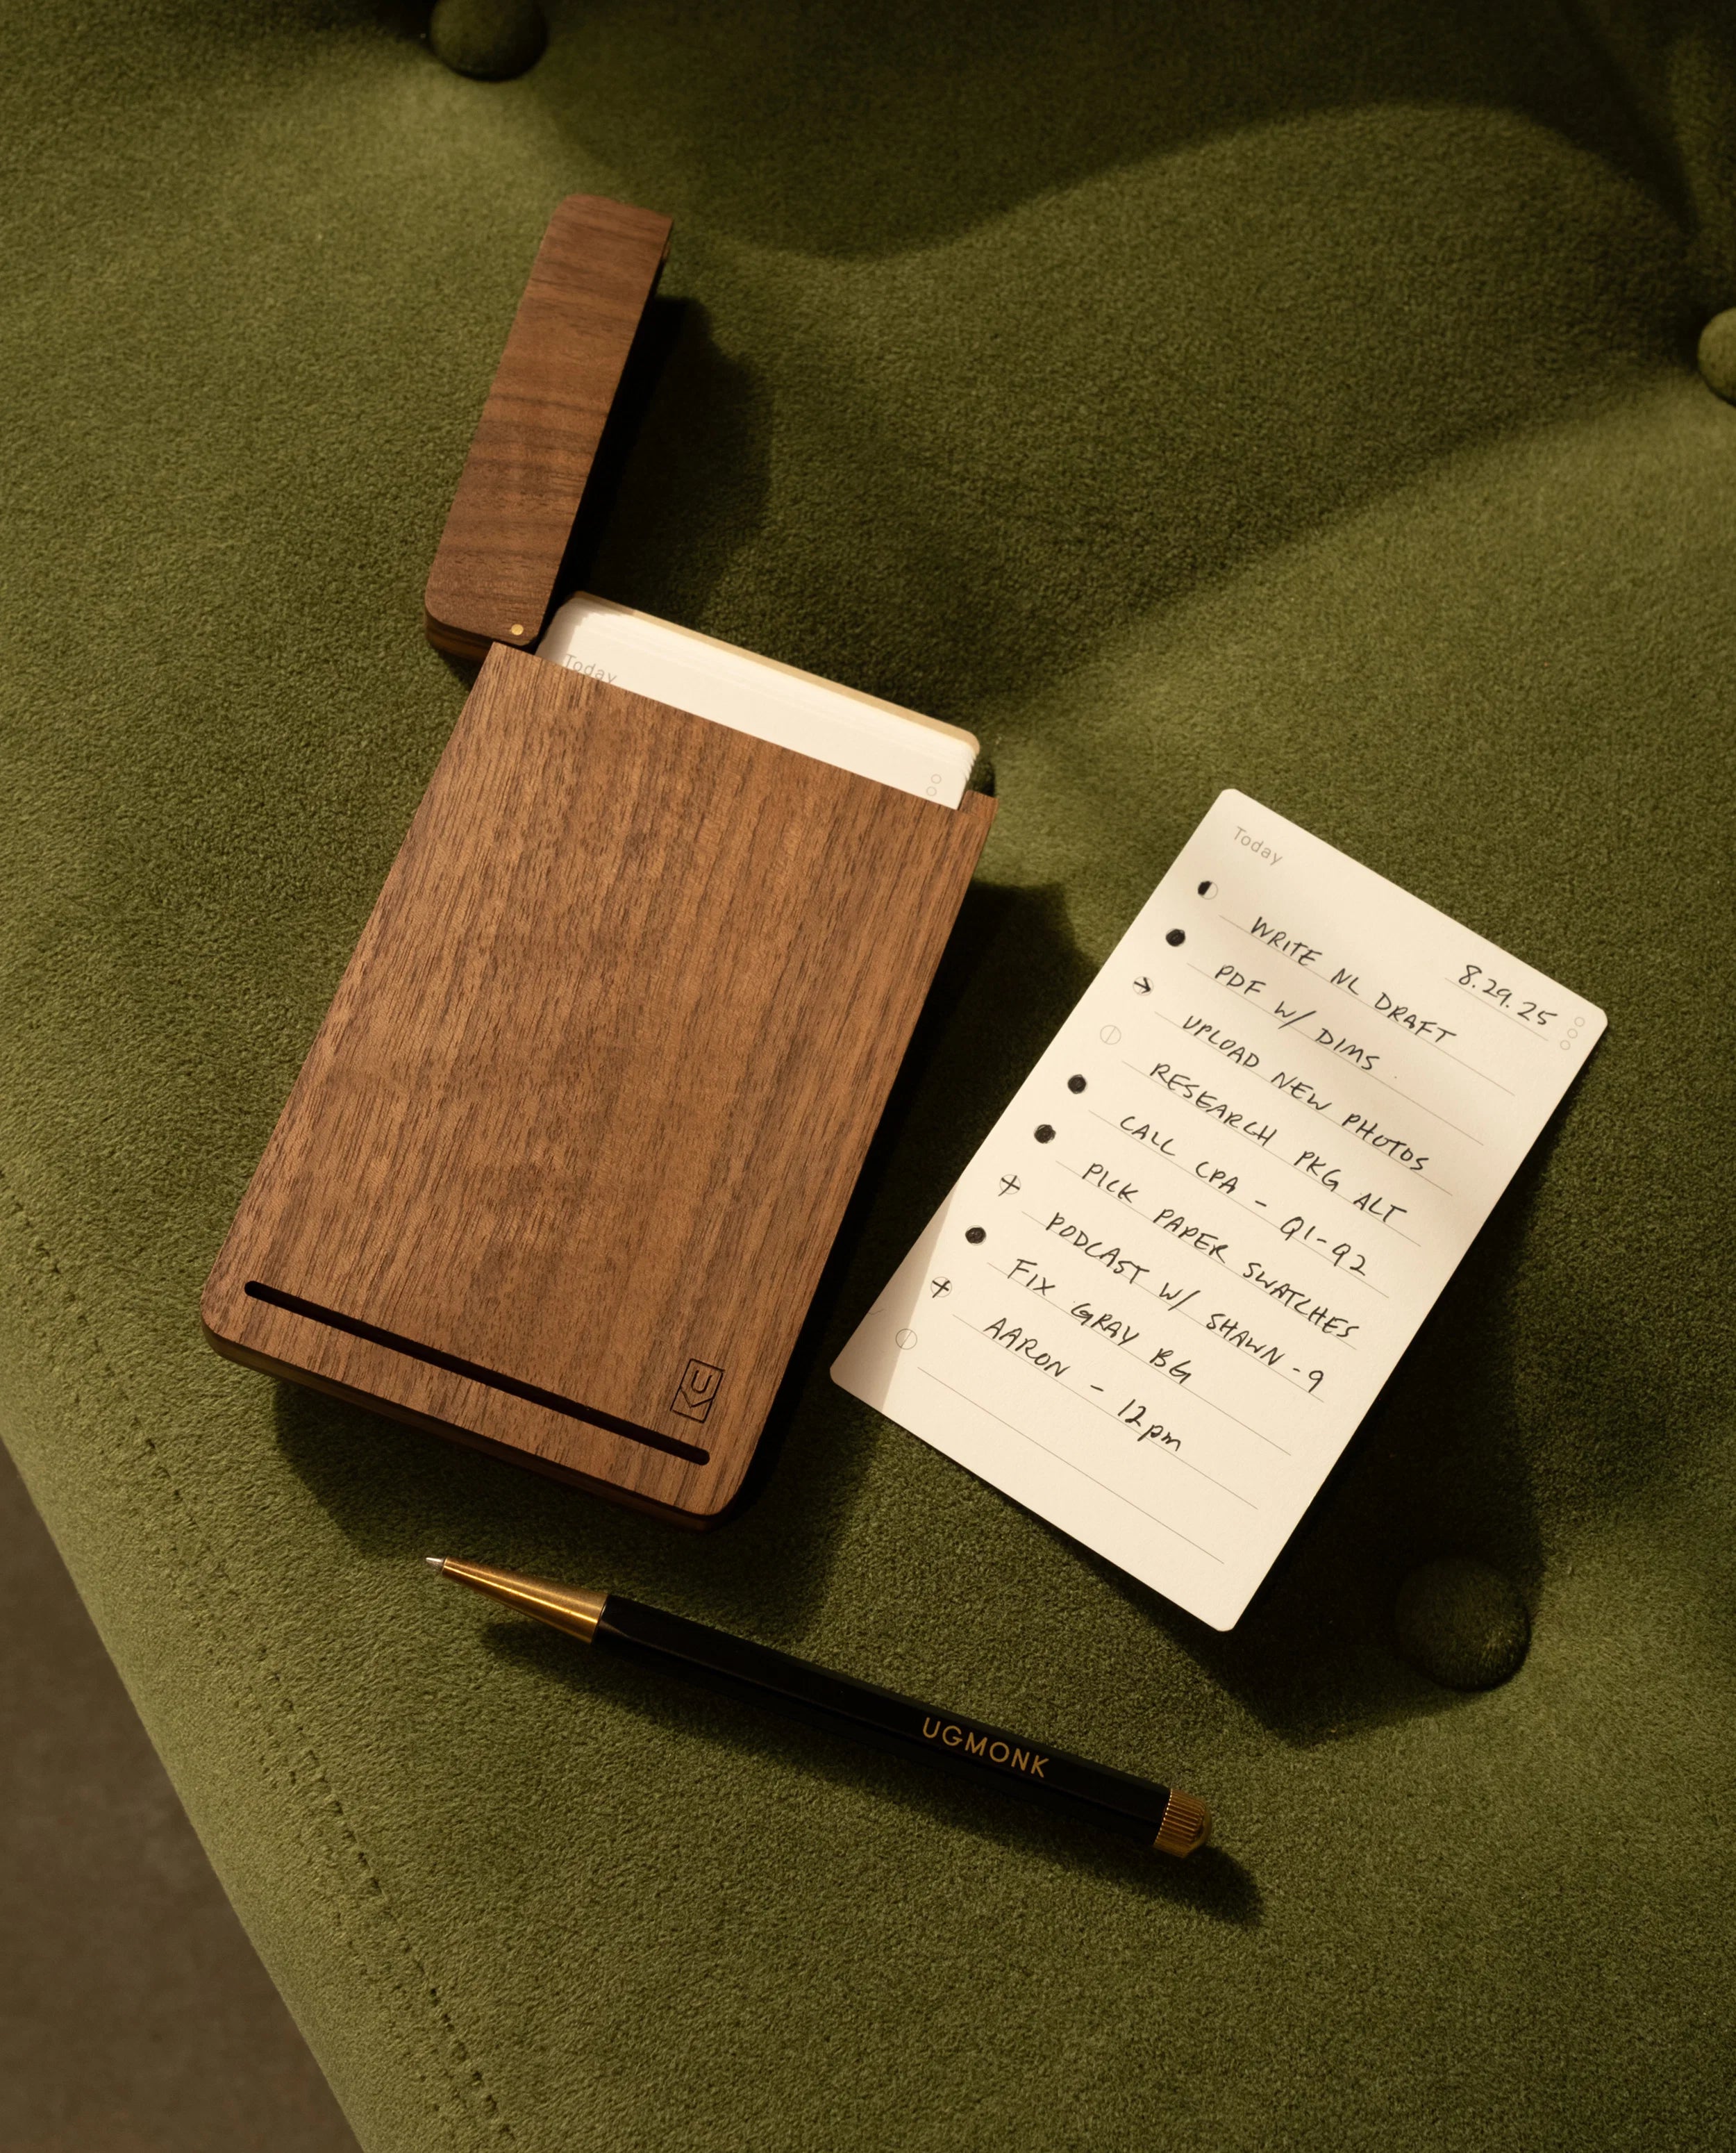 Today
U
Today
8.29.25
WRITE NL DRAFT
PDF W/ DIMS
UPLOAD NEW PHOTOS
RESEARCH PKG ALT
CALL CPA - Q1-Q2
PICK PAPER SWATCHES
PODCAST W/ SHAWN - 9
FIX GRAY BG
AARON - 12pm
UGMONK